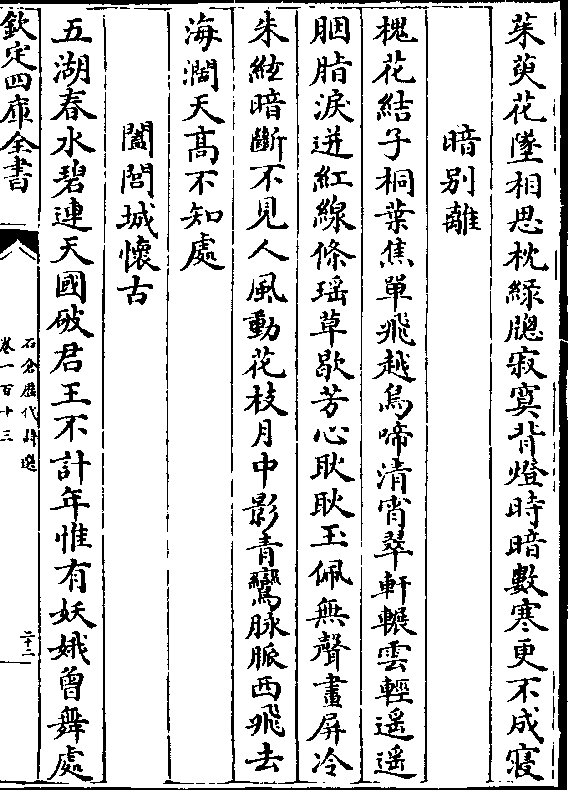 茱萸花墜相思枕緑牎寂寞背燈時暗數寒更不成寢
暗别離
槐花結子桐葉焦單飛越鳥啼清宵翠軒輾雲輕遥遥
胭脂淚迸紅線條瑶草歇芳心耿耿玉佩無聲畫屏冷
朱絃暗斷不見人風動花枝月中影青鸞脉脈西飛去
海濶天髙不知處
闔閭城懷古
五湖春水碧連天國破君王不計年惟有妖娥曾舞處
欽定四庫全書
石倉歴代詩選
卷一百十三
二十二